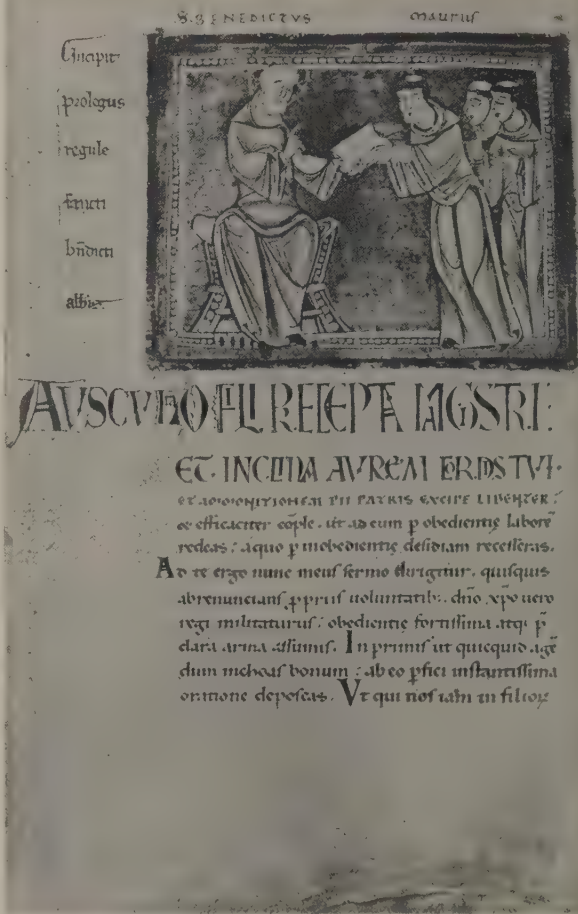 S. BENEDICTVS
MAURUS
Incipit
prologus
regule
sancti
bndicti
abbis
AVSCVLTA O FILI PRECEPTA MAGISTRI:
ET INCLINA AVREM CORDIS TVI.
ET ADMONITIONEM PII PATRIS EXCIPE LIBENTER:
& efficaciter cople. ut ad eum p obedientię laborē
redeas: a quo p inobedientię desidiam recesseras.
Ad te ergo nunc meus sermo dirigitur. quisquis
abrenuncians ppriis uoluntatib;. dño xpo uero
regi militaturus: obedientię fortissima atq; p̄
clara arma assumis. In primis ut quicquid agē
dum inchoas bonum: ab eo pfici instantissima
oratione deposcas. Vt qui nos iam in filioꝝ